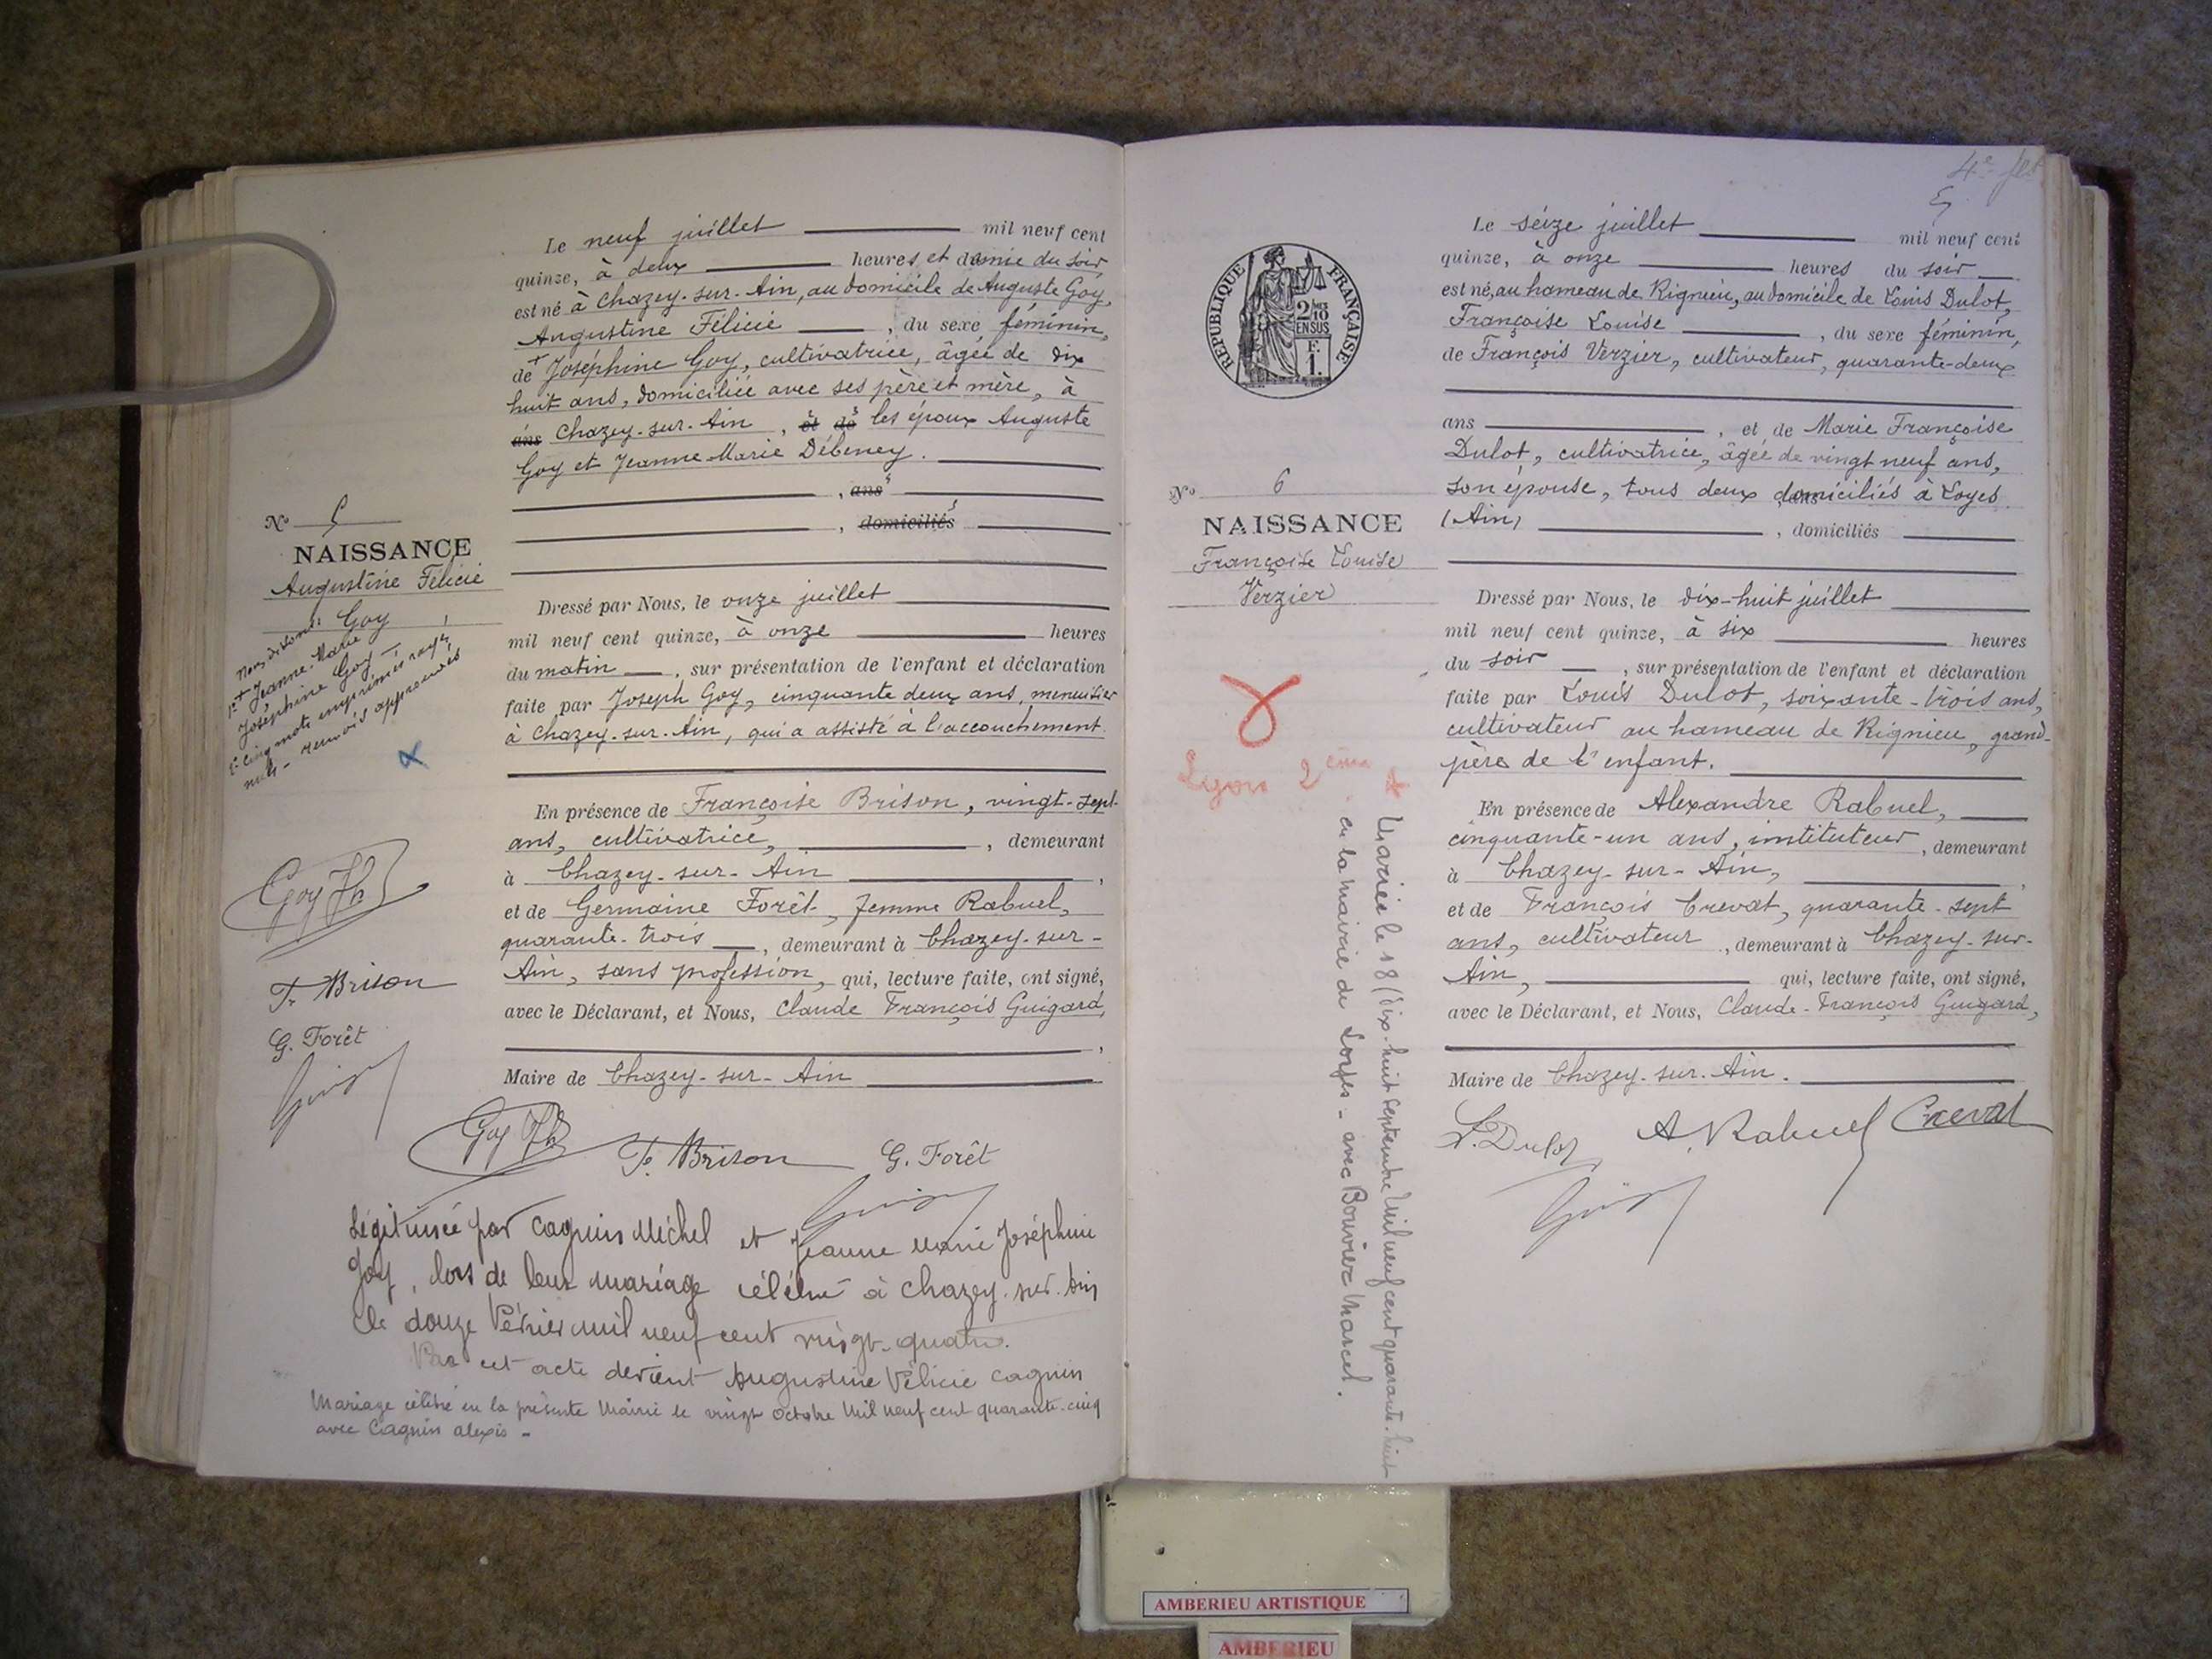 Le neuf juillet mil neuf cent
quinze, à deux heures et demie du soir,
est né à Chazey-sur-Ain, au domicile de Auguste Goy,
Augustine Félicie , du sexe féminin,
de + Joséphine Goy, cultivatrice, âgée de dix
huit ans, domiciliée avec ses père et mère, à
ans Chazey-sur-Ain , et de les époux Auguste
Goy et Jeanne-Marie Débeney.
, ans
, domiciliés
No 5
NAISSANCE
Augustine Félicie
Goy
Nous, disons:
1° + Jeanne-Marie
Joséphine Goy -
2° cinq mots imprimés rayés
nuls - renvois approuvés
Dressé par Nous, le onze juillet
mil neuf cent quinze, à onze heures
du matin , sur présentation de l'enfant et déclaration
faite par Joseph Goy, cinquante deux ans, menuisier
à Chazey-sur-Ain, qui a assisté à l'accouchement.
En présence de Françoise Brison, vingt-sept
ans, cultivatrice, , demeurant
à Chazey-sur-Ain ,
et de Germaine Forêt, femme Rabuel,
quarante-trois , demeurant à Chazey-sur-
Ain, sans profession, qui, lecture faite, ont signé,
avec le Déclarant, et Nous, Claude François Guigard,
,
Maire de Chazey-sur-Ain
Goy Jh
F. Brison
G. Forêt
Goy Jh F. Brison G. Forêt
Légitimée par Cagnin Michel et Jeanne Marie Joséphine
Goy, lors de leur mariage célébré à Chazey-sur-Ain
le douze Février mil neuf cent vingt-quatre.
Par cet acte devient Augustine Félicie Cagnin
Mariage célébré en la présente Mairie le vingt Octobre Mil neuf cent quarante-cinq
avec Cagnin Alexis -
4e
5
RÉPUBLIQUE FRANÇAISE
2/10
EN SUS
F.
1.
Le seize juillet mil neuf cent
quinze, à onze heures du soir
est né, au hameau de Rignieu, au domicile de Louis Dulot,
Françoise Louise , du sexe féminin,
de François Verzier, cultivateur, quarante-deux
ans , et de Marie Françoise
Dulot, cultivatrice, âgée de vingt neuf ans,
son épouse, tous deux domiciliés à Loyes
(Ain) , domiciliés
No 6
NAISSANCE
Françoise Louise
Verzier
Lyon 2ème
Mariée le 18 (dix-huit septembre Mil neuf cent quarante-huit
en la mairie de Loyes - avec Bouvier Marcel.
Dressé par Nous, le dix-huit juillet
mil neuf cent quinze, à six heures
du soir , sur présentation de l'enfant et déclaration
faite par Louis Dulot, soixante-trois ans,
cultivateur au hameau de Rignieu, grand-
père de l'enfant.
En présence de Alexandre Rabuel,
cinquante-un ans, instituteur , demeurant
à Chazey-sur-Ain, ,
et de François Crevat, quarante-sept
ans, cultivateur , demeurant à Chazey-sur-
Ain, qui, lecture faite, ont signé,
avec le Déclarant, et Nous, Claude-François Guigard,
Maire de Chazey-sur-Ain.
L. Dulot A. Rabuel Crevat
AMBERIEU ARTISTIQUE
AMBERIEU